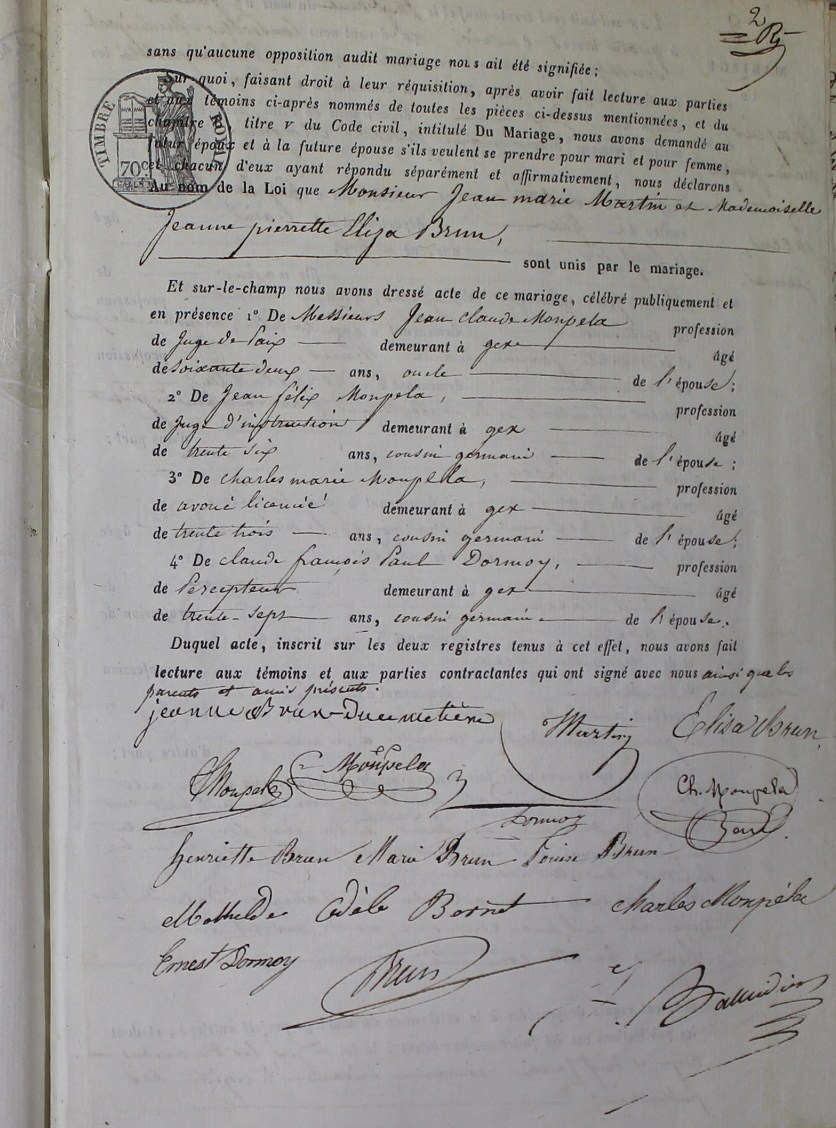 2
sans qu'aucune opposition audit mariage nous ait été signifiée;
Sur quoi, faisant droit à leur réquisition, après avoir fait lecture aux parties
et aux témoins ci-après nommés de toutes les pièces ci-dessus mentionnées, et du
chapitre titre V du Code civil, intitulé Du Mariage, nous avons demandé au
futur époux et à la future épouse s'ils veulent se prendre pour mari et pour femme,
et chacun d'eux ayant répondu séparément et affirmativement, nous déclarons
Au nom de la Loi que Monsieur Jean marie Martin et Mademoiselle
Jeanne pierrette Eliza Brun,
sont unis par le mariage.
TIMBRE ROYAL
70 c.
Et sur-le-champ nous avons dressé acte de ce mariage, célébré publiquement et
en présence 1° De Messieurs Jean Claude Monpela profession
de Juge de Paix demeurant à gex âgé
de soixante deux ans, oncle de l'épouse;
2° De Jean félix Monpela, profession
de Juge d'instruction demeurant à gex âgé
de trente six ans, cousin germain de l'épouse;
3° De charles marie Monpela, profession
de avoué licencié demeurant à gex âgé
de trente trois ans, cousin germain de l'épouse;
4° De claude françois Paul Dormoy, profession
de Percepteur demeurant à gex âgé
de trente-sept ans, cousin germain de l'épouse.
Duquel acte, inscrit sur les deux registres tenus à cet effet, nous avons fait
lecture aux témoins et aux parties contractantes qui ont signé avec nous ainsi que les
parents et amis présents.
jeanne Brun-Ducimetière Martin Elisa Brun
Monpela Monpela Ch. Monpela
Dormoy
henriette Brun Marie Brun Louise Brun
Mathilde Adèle Bornet Charles Monpéla
Ernest Dormoy Brun